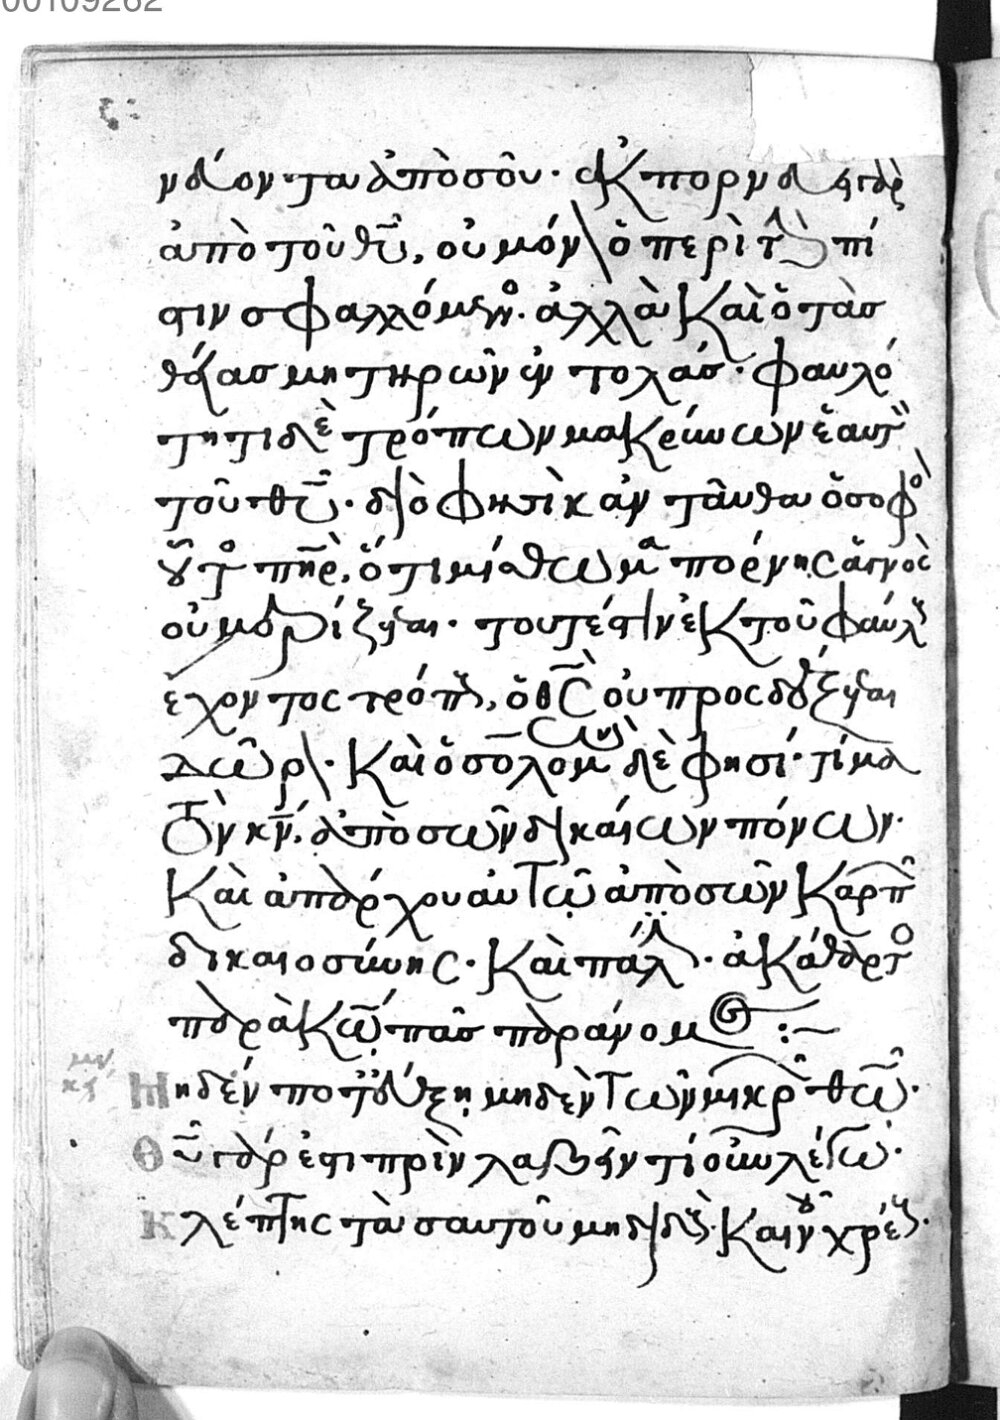 00109262
νεύοντα ἀπὸ σοῦ· ἐκπορνεύει γὰρ
ἀπὸ τοῦ θυ, οὐ μόνον ὁ περὶ τὴν πί
στιν σφαλλόμενος· ἀλλὰ καὶ ὁ τὰσ
θείασ μὴ τηρῶν ἐντολάσ· φαυλό
τητι δὲ τρόπων μακρύνων ἑαυτὸν
τοῦ θυ· διὸ φησὶ κἀνταῦθα ὁ σοφὸσ
οὗτος πηρ, ὅτι μίσθωμα πόρνης ἁγνὸς
οὐ μερίζεται· τουτέστιν ἐκ τοῦ φαύλως
ἔχοντος τρόπου, ὁ θς οὐ προσδέξεται
δῶρον· καὶ ὁ σολομῶν δὲ φησί· τίμα
τὸν κν, ἀπὸ σῶν δικαίων πόνων·
καὶ ἀπάρχου αὐτῶ ἀπὸ σῶν καρπῶν
δικαιοσύνης· καὶ πάλιν· ἀκάθαρτος
παρὰ κω πᾶσ παράνομος :~
Μηδέν ποτ' εὔξη μηδὲν τῶν μικρῶν θω·
Θυ γάρ ἐστι πρὶν λαβεῖν τί οὖν λέγω·
Κλέπτης τὰ σαυτοῦ μὴ διδοὺς· καινοῦ χρέους·